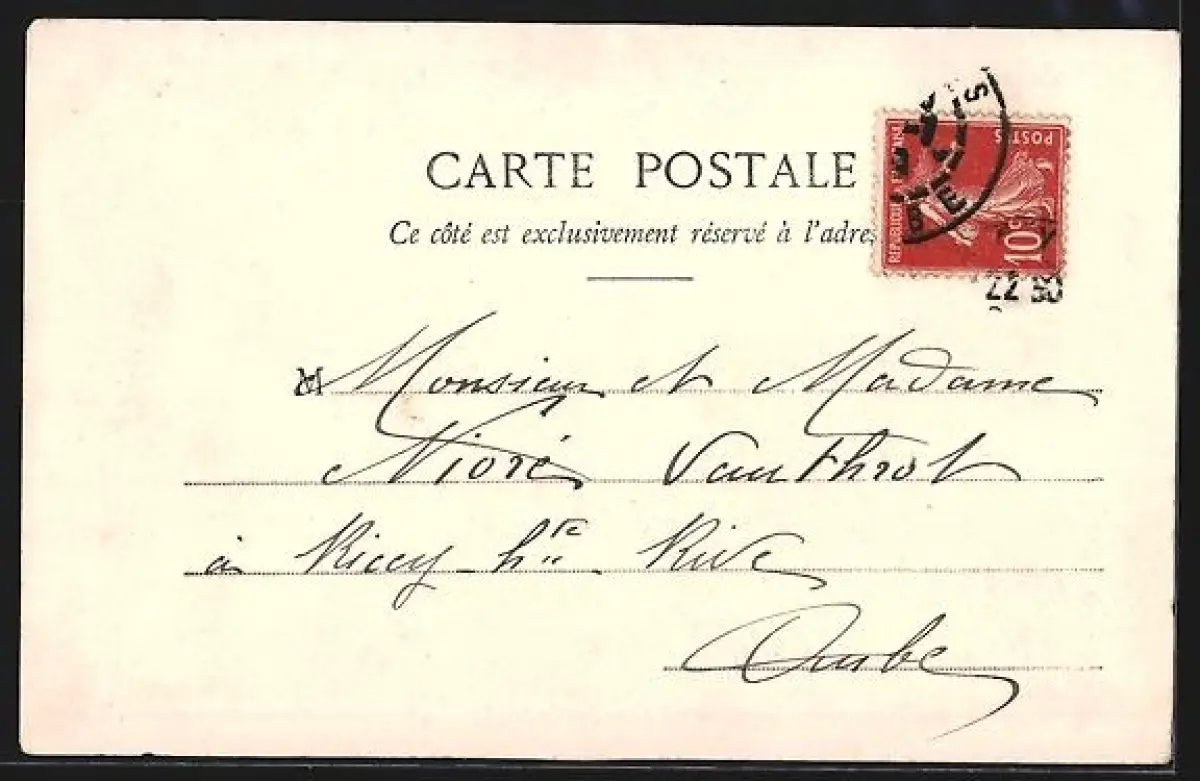 CARTE POSTALE
Ce côté est exclusivement réservé à l'adres
REPUBLIQUE FRANÇAISE
POSTES
10c
22 30
M
Monsieur et Madame
Nioré Vauthrot
à Ricey hte Rive
Aube